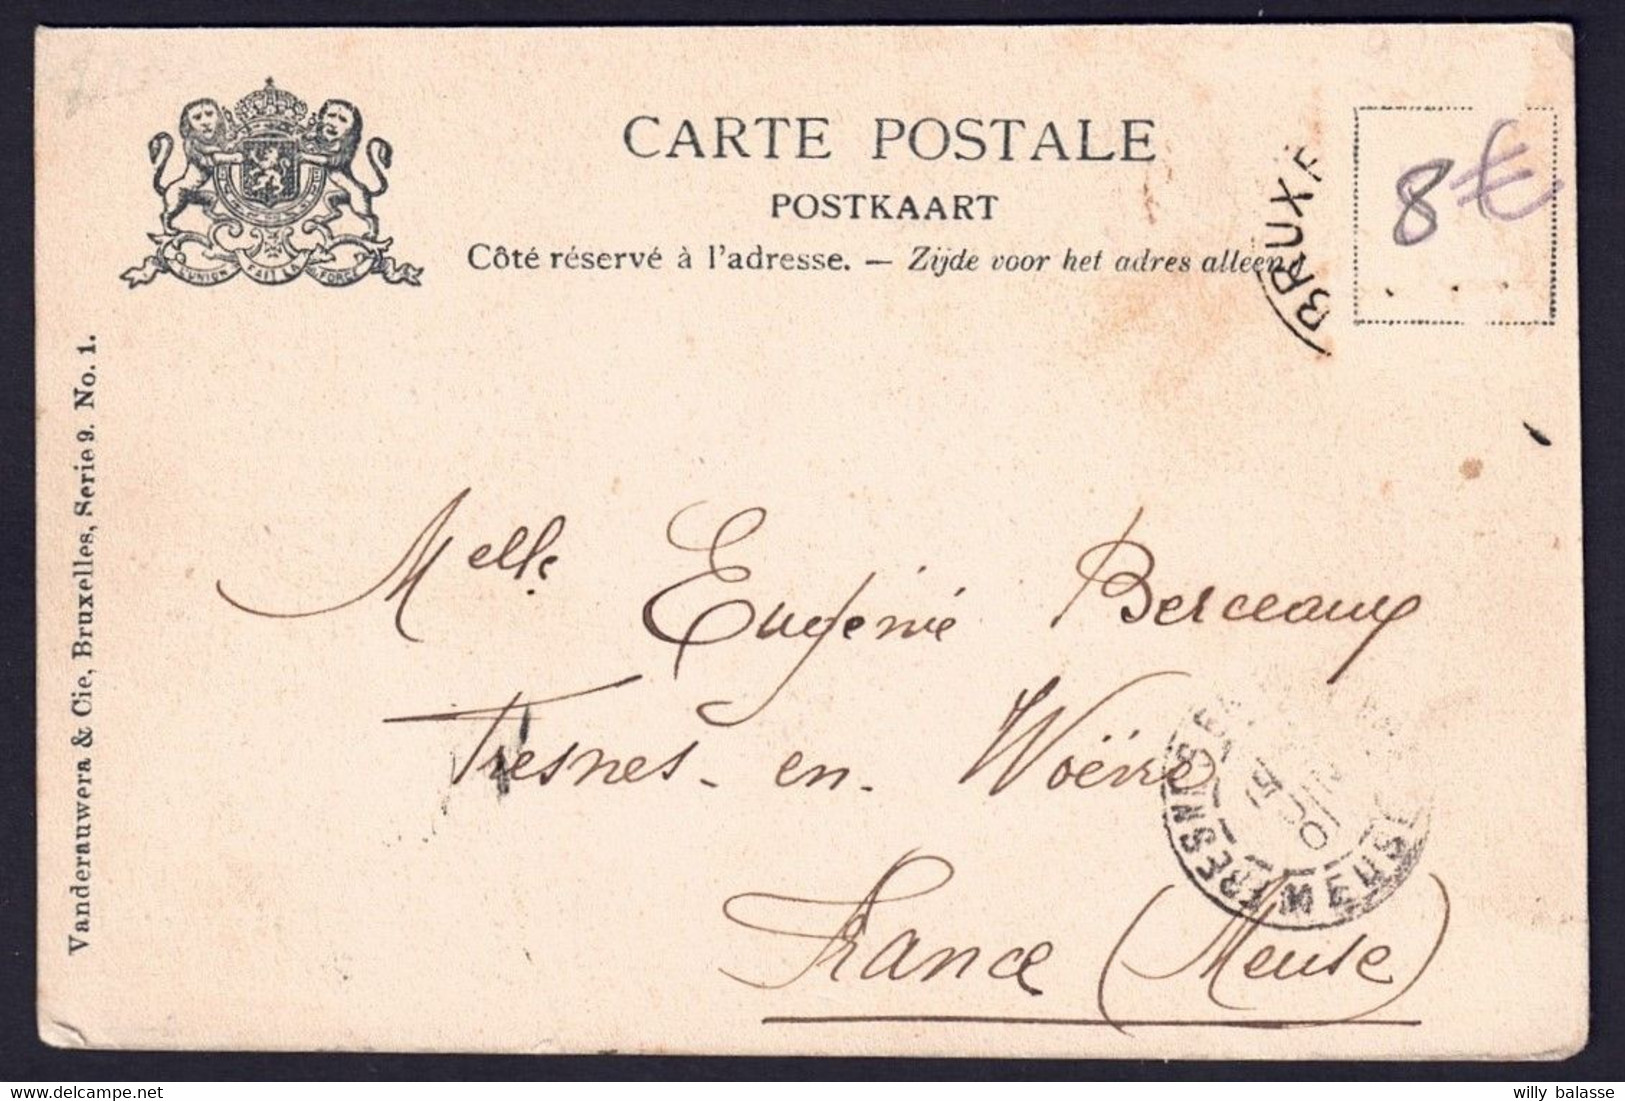 CARTE POSTALE
POSTKAART
Côté réservé à l'adresse. — Zijde voor het adres alleen.
L'UNION FAIT LA FORCE
BRUXE
8€
Vanderauwera & Cie, Bruxelles, Serie 9. No. 1.
Melle Eugénie Berceaux
Fresnes-en-Woëvre
France (Meuse)
FRESNES
MEUSE
willy balasse